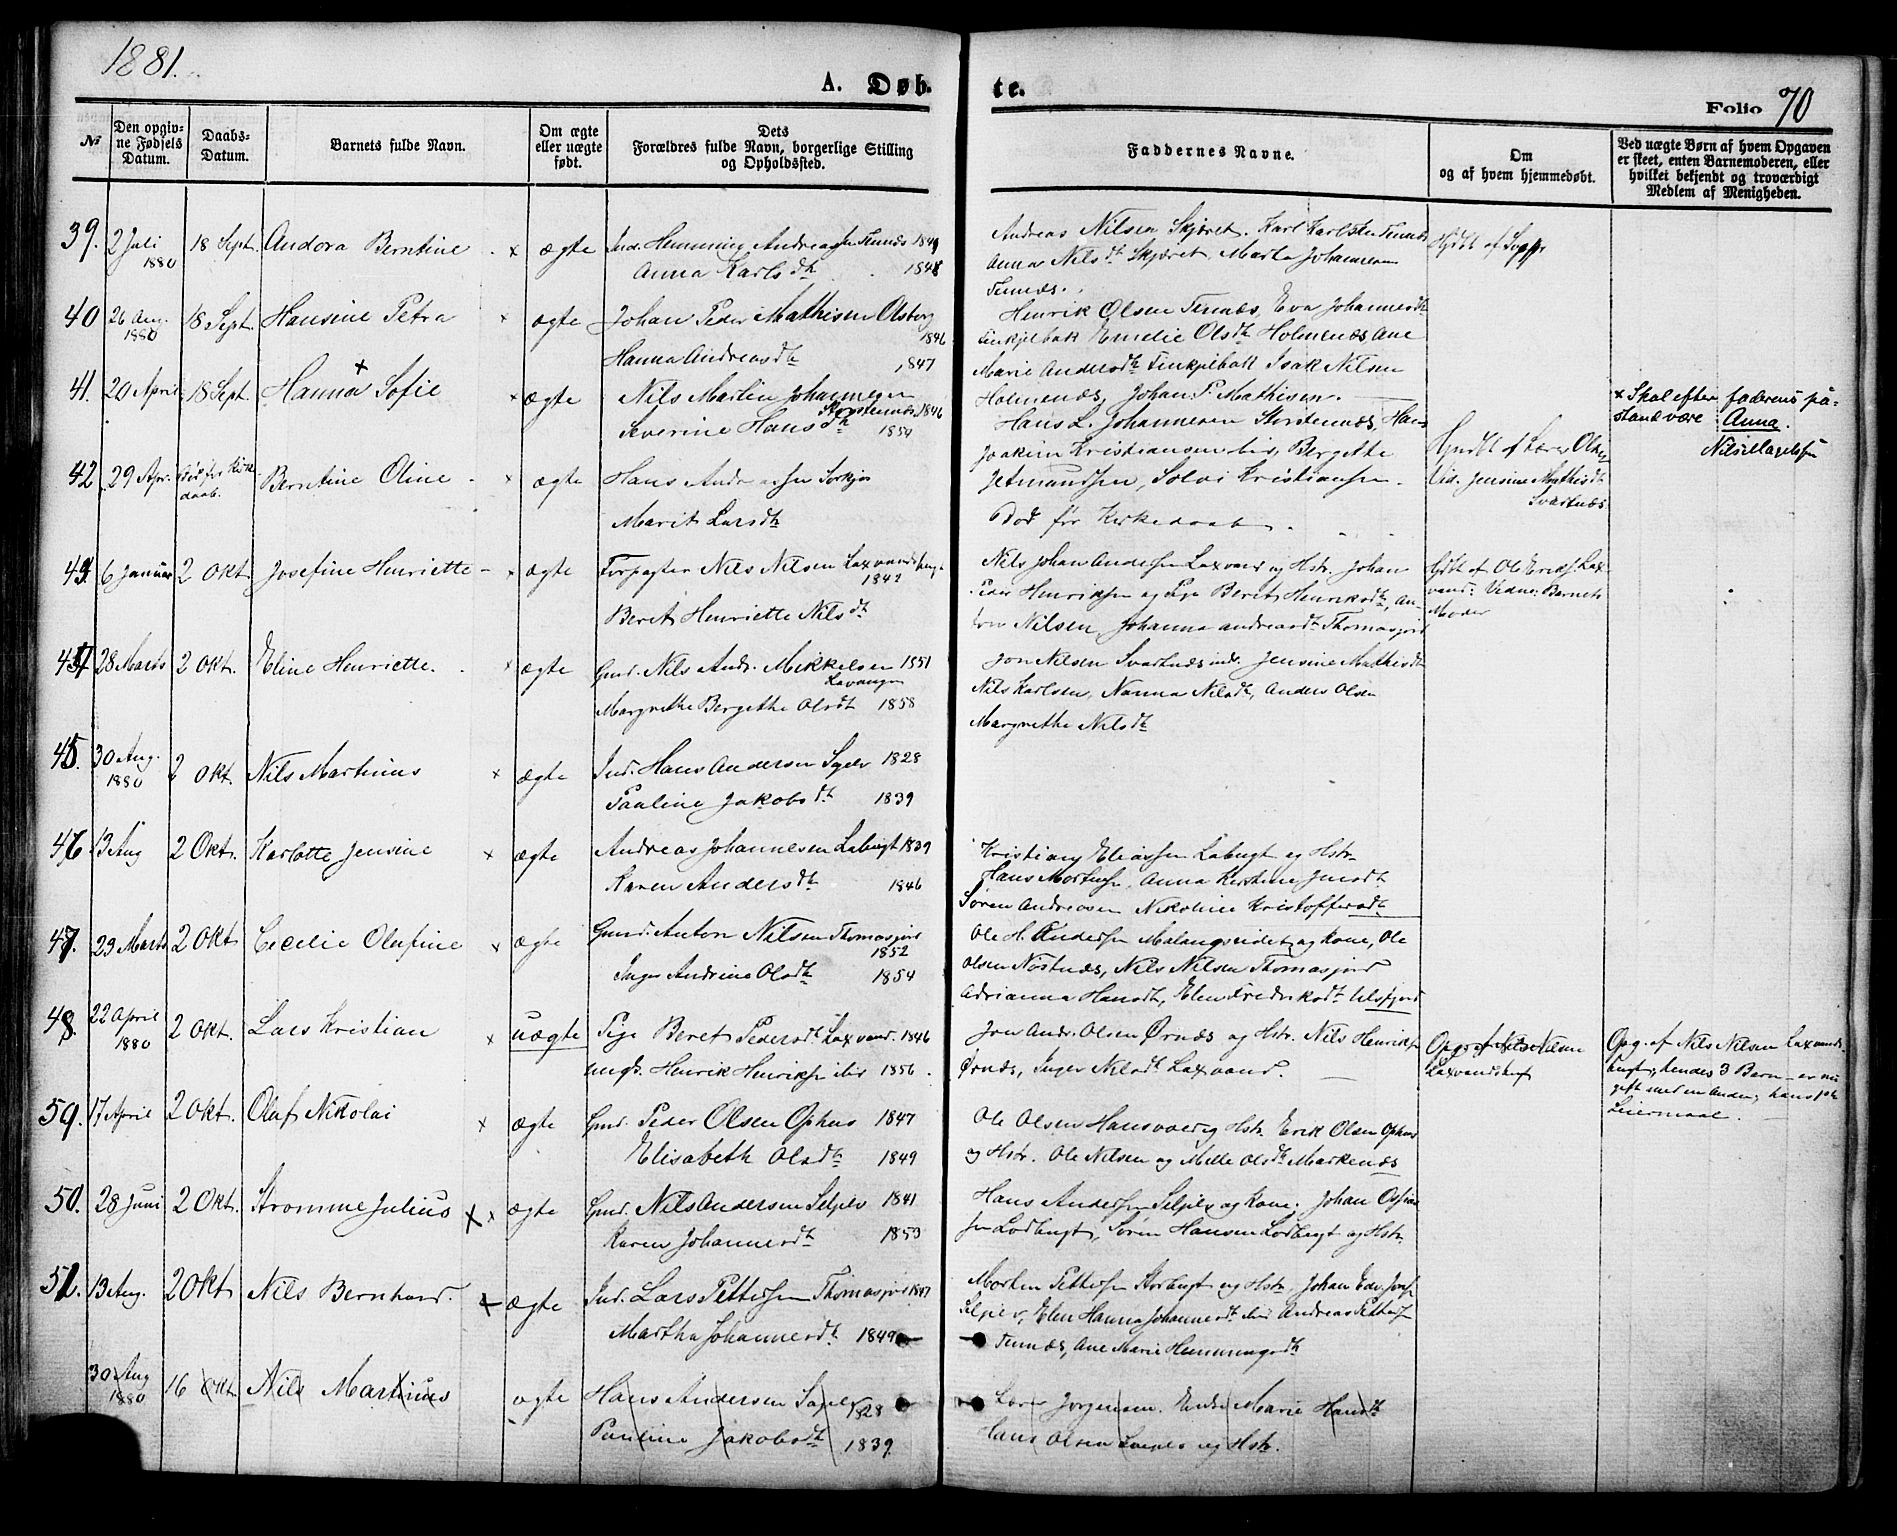 1881.
A. Døb-
te.
Folio 70
№
Den opgiv-
ne Fødsels
Datum.
Daabs-
Datum.
Barnets fulde Navn.
Om ægte
eller uægte
født.
Dets
Forældres fulde Navn, borgerlige Stilling
og Opholdssted.
Faddernes Navne.
Om
og af hvem hjemmedøbt.
Ved uægte Børn af hvem Opgaven
er skeet, enten Barnemoderen, eller
hvilket bekjendt og troværdigt
Medlem af Menigheden.
39. 2 Juli 1880 18 Sept. Andora Berntine × ægte Ind. Hemming Andreassen Tennes 1849
Anna Karlsdtr 1848
Andreas Nilsen Skjæret. Karl Karlsen Tennes
Anna Nilsdtr Skjæret Marta Johannesen
Tennes.
Hjdbt af
40 26 Aug. 1880 18 Sept. Hansine Petra × ægte Johan Peder Mathisen Olsborg
1846
Hanna Andreasdtr 1847
Henrik Olsen Tennes, Eva Johannesdtr
Emelie Olsdtr Holmenæs Ane
Marie Andersdtr Isak Nilsen
Holmenæs, Johan P. Mathisen.
41. 20 April 18 Sept. Hanna × Sofie × ægte Nils Martin Johannesen
Storstennes 1846
Severine Hansdtr 1854
Hans L. Johannesen Storstennes, Hans
Joakim Kristiansen ibid, Bergette
Jetmundsen, Solvi Kristiansen.
× Skal efter faderens på-
stand være Anna.
42 29 Apr. Død før Kirke-
daab. Berntine Oline × ægte Hans Andreassen Sørkjos
Marit Larsdtr
Død før Kirkedaab.
Hjmdbt af Lærer Olsen
Vid. Jensine Mathisdtr
Svartnæs
43. 6 Januar 2 Okt. Josefine Henriette × ægte Forpagter Nils Nilsen Laxvandsbugt
1842
Beret Henriette Nilsdtr
Nils Johan Andersen Laxvand og Hstr. Johan
Peder Henriksen og Pige Beret Henriksdtr, An-
ton Nilsen Johanna Andreasdtr Thomasjord
Hjdbt af Ole Eriks. Lax-
vand: Vidne: Barnets
Moder
44 28 Marts 2 Okt. Eline Henriette. × ægte Gmd. Nils Andr. Mikkelsen 1851
Lavangen
Margrethe Bergethe Olsdtr 1858
Jon Nilsen Svartnæs Jensine Mathisdtr
Nils Karlsen, Nanna Nilsdtr, Anders Olsen
Margrethe Nilsdtr
45. 30 Aug. 1880 2 Okt. Nils Martinus × ægte Ind. Hans Andersen 1828
Pauline Jakobsdtr 1839
46 13 Aug 2 Okt. Karlotte Jensine × ægte Andreas Johannesen Labugt 1839
Karen Andersdtr 1846
Kristian Eliassen Labugt og Hstr
Hans Mortensen, Anna Kirstine
Søren Andreasen Nikoline Kristoffersdtr
47. 29 Marts 2 Okt Cecelie Olufine × ægte Gmd. Anton Nilsen Thomasjord
1852
Inger Andrine Olsdtr 1854
Ole H. Andersen Malangseidet og Kone, Ole
Olsen Nøstnæs, Nils Nilsen Thomasjord
Adrianna Hansdtr, Elen Fredriksdtr Ulsfjord
48. 22 April 1880 2 Okt. Lars Kristian × uægte Pige Beret Pedersdtr Laxvand. 1846
ungk. Henrik Henriksen ibid 1856.
Jon Andr. Olsen Ørnæs og Hstr. Nils Henriksen
Ørnæs, Inger Nilsdtr Laxvand.
Opg. af Nils Nilsen
Laxvandsbugt
Opg. af Nils Nilsen Laxvands-
bugt; hendes 3 Barn - er nu
gift med en Anden; hans 1ste
Leiermaal.
59. 17 April 2 Okt. Oluf Nikolai × ægte Gmd. Peder Olsen Ophus 1847
Elisabeth Olsdtr 1849
Ole Olsen Hansvold og Hstr. Erik Olsen Ophus
og Hstr. Ole Nilsen og Mille Olsdtr Markenæs
50. 28 Juni 2 Okt. Stromme Julius × × ægte Gmd. Nils Andersen Selpelv 1841
Karen Johannesdtr 1853
Hans Andersen Selpelv og Kone. Johan
Lodbugt, Søren Hansen Lodbugt og Hstr.
51. 13 Aug. 2 Okt Nils Bernhard. × ægte Ind. Lars Pettersen Thomasjord 1847
Martha Johannesdtr 1849
Morten Pettersen Storbugt og Hstr, Johan Edv.
Selpelv, Elen Hanna Johannesdtr ibid Andreas Pettersen
Tennæs, Ane Marie Hemmingsdtr
30 Aug 1880 16 Okt Nils Martinus ægte Hans Andersen 1828
Pauline Jakobsdtr 1839
Jørgensen. Marie Hansdtr
Hans Olsen og Hstr.